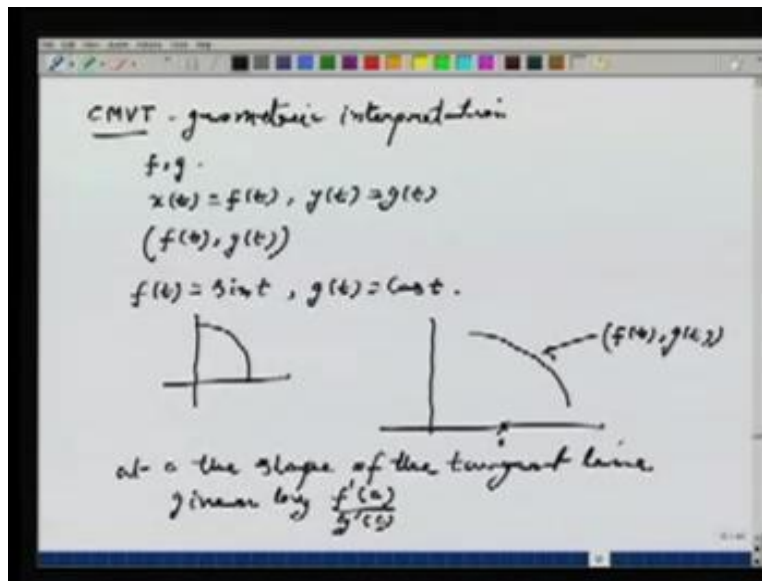 CMVT - geometric interpretation
f, g.
x(t) = f(t), y(t) = g(t)
(f(t), g(t))
f(t) = sin t, g(t) = cos t.
(f(t), g(t))
at a the slope of the tangent line
given by f'(a)/g'(a)